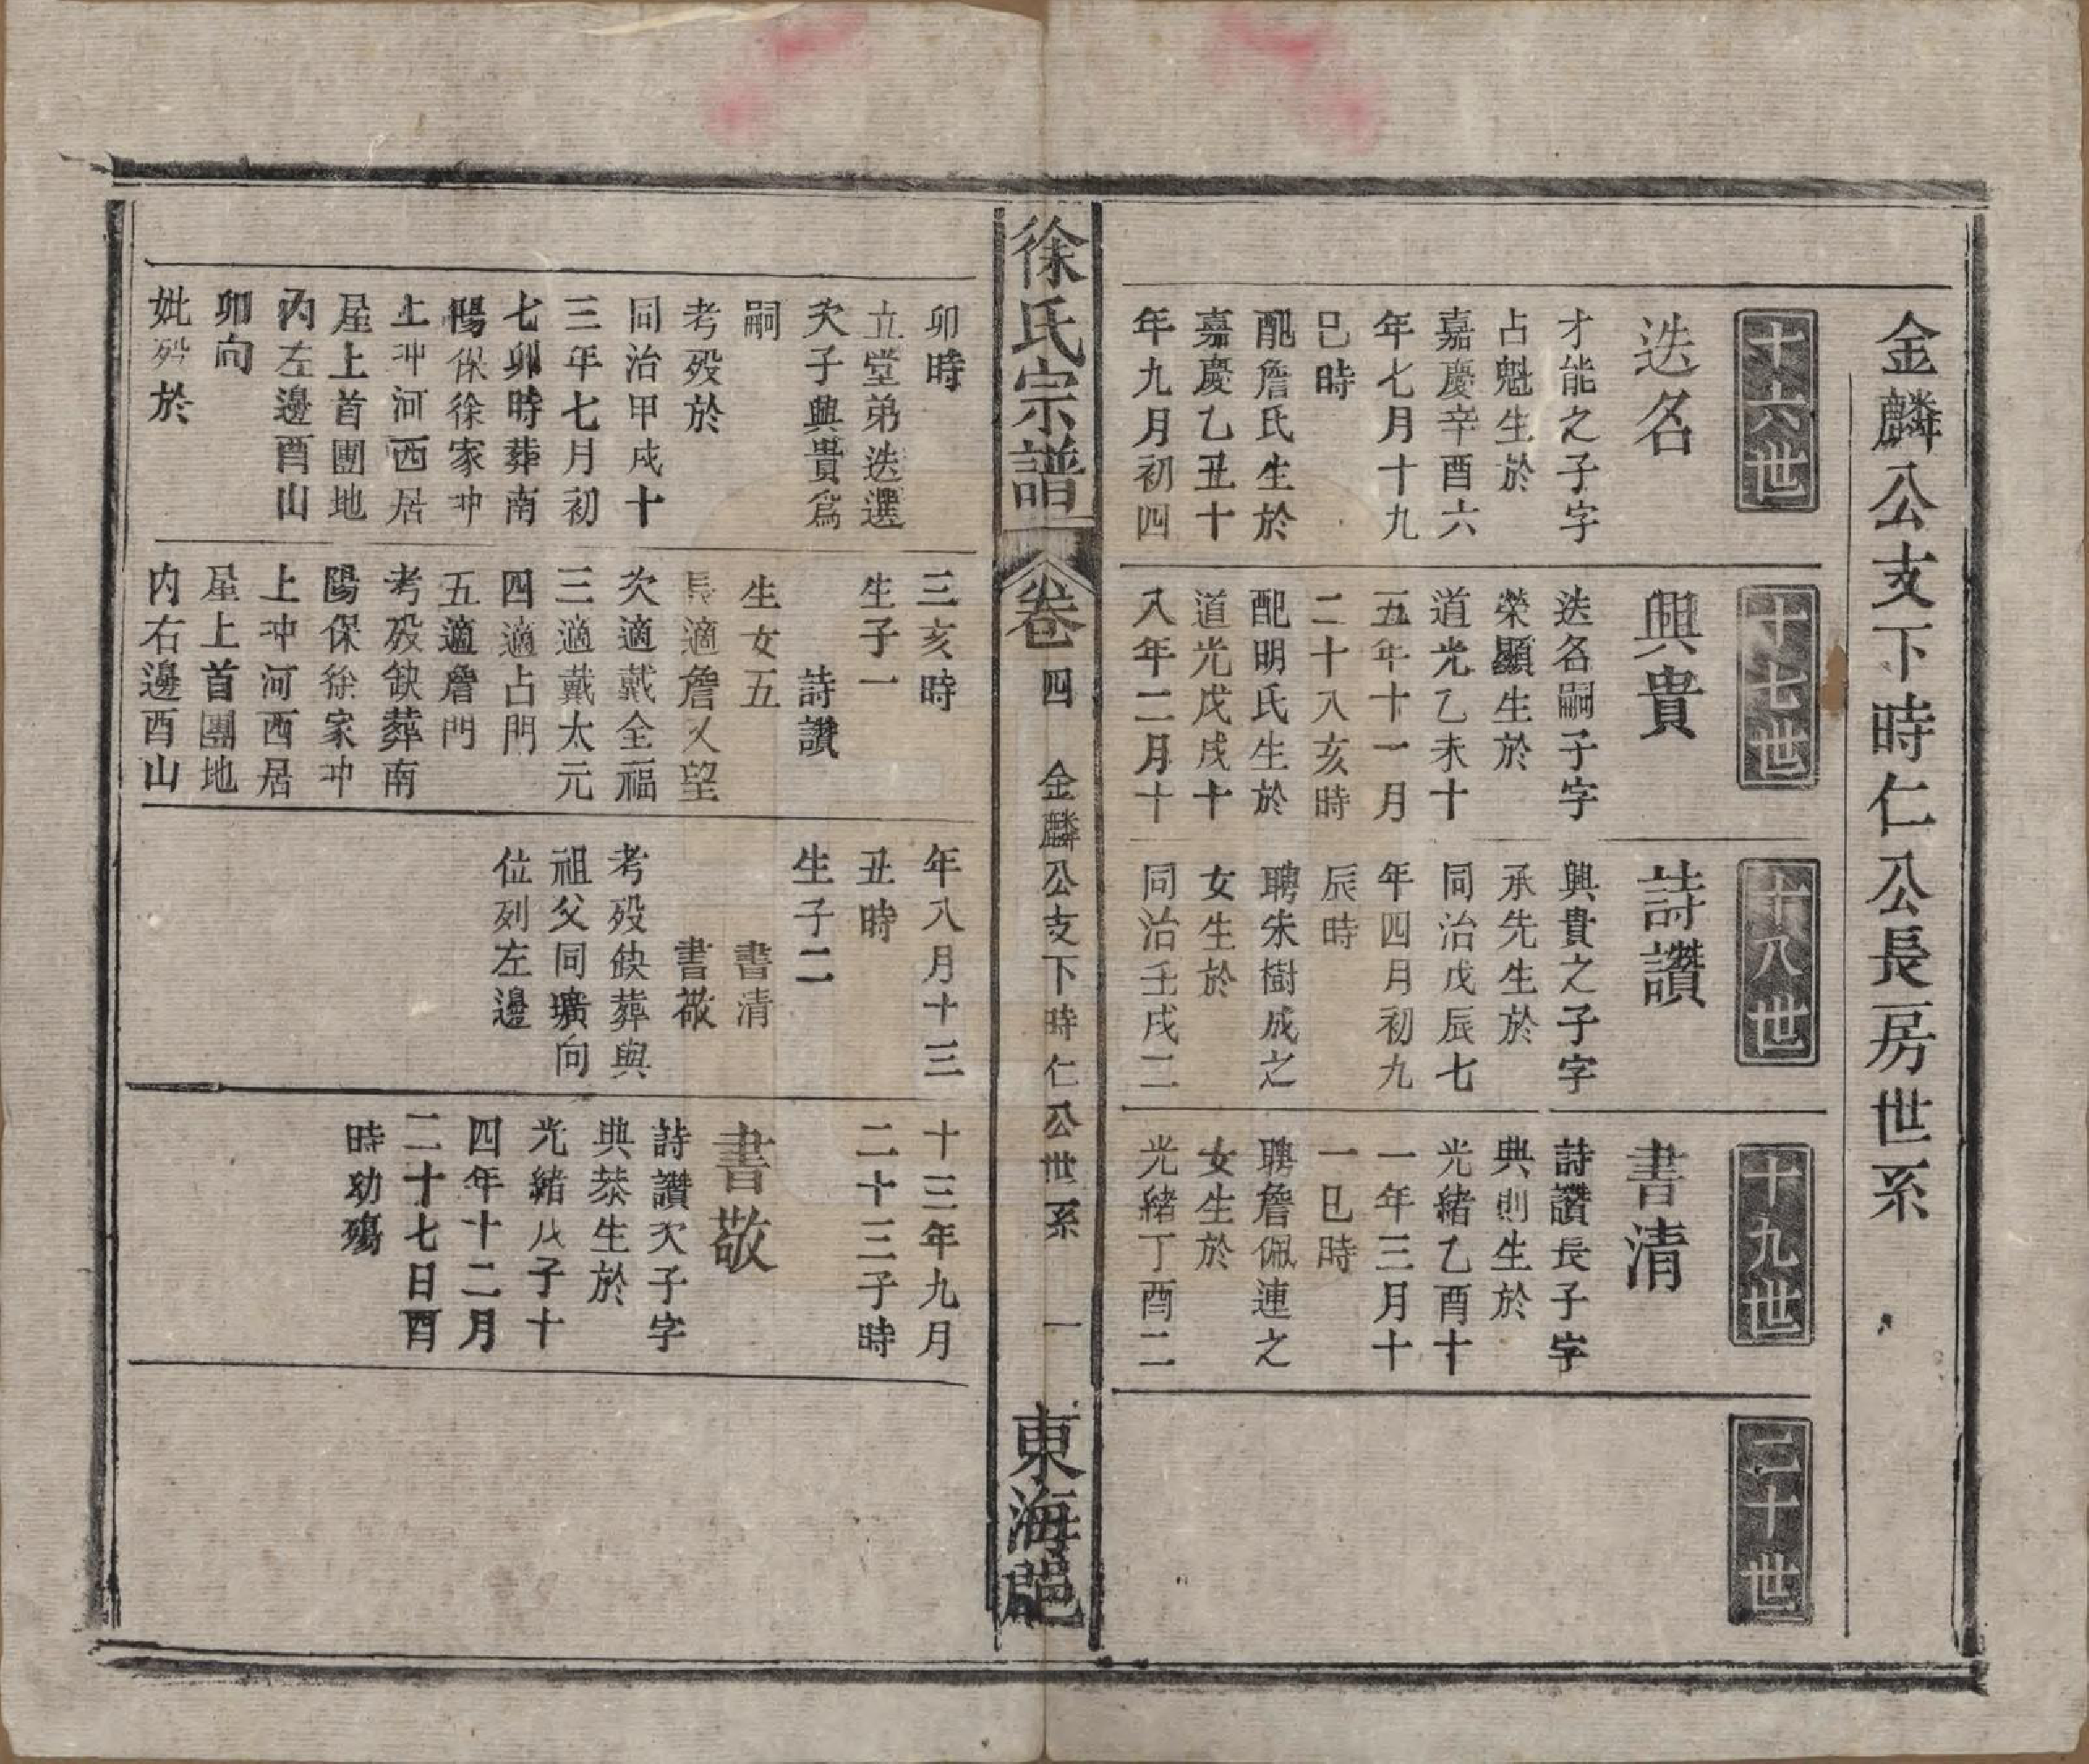 金麟公支下時仁公長房世系
十六世
迭名
才能之子字
占魁生於
嘉慶辛酉六
年七月十九
巳時
配詹氏生於
嘉慶乙丑十
年九月初四
十七世
興貴
迭名嗣子字
榮顯生於
道光乙未十
五年十一月
二十八亥時
配明氏生於
道光戊戌十
八年二月十
十八世
詩讚
興貴之子字
承先生於
同治戊辰七
年四月初九
辰時
聘朱樹成之
女生於
同治壬戌二
十九世
書清
詩讚長子字
典則生於
光緒乙酉十
一年三月十
一巳時
聘詹佩連之
女生於
光緒丁酉二
二十世
徐氏宗譜
卷四
金麟公支下時仁公世系
一
東海郡
卯時
立堂弟迭選
次子興貴為
嗣
考歿於
同治甲戌十
三年七月初
七卯時葬南
陽保徐家冲
上冲河西居
屋上首團地
內左邊酉山
卯向
妣歿於
三亥時
生子一
詩讚
生女五
長適詹乂望
次適戴全福
三適戴太元
四適占門
五適詹門
考歿缺葬南
陽保徐家冲
上冲河西居
屋上首團地
內右邊酉山
年八月十三
丑時
生子二
書清
書敬
考歿缺葬與
祖父同壙向
位列左邊
十三年九月
二十三子時
書敬
詩讚次子字
典恭生於
光緒戊子十
四年十二月
二十七日酉
時幼殤